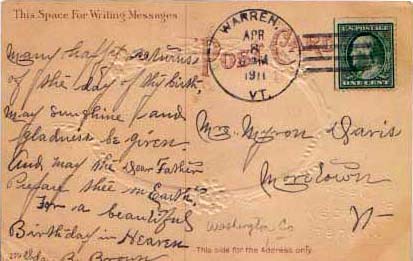 This Space For Writing Messages
Many happy returns
of the day of thy birth,
May sunshine and
gladness be given.
And may the Dear Father
Prepare thee on Earth,
For a beautiful
Birthday in Heaven
B. Brown
WARREN,
APR
8
AM
1911
VT.
U.S. POSTAGE
ONE CENT
Mrs. Myron Davis
Moretown
Vt
Washington Co
This side for the Address only.